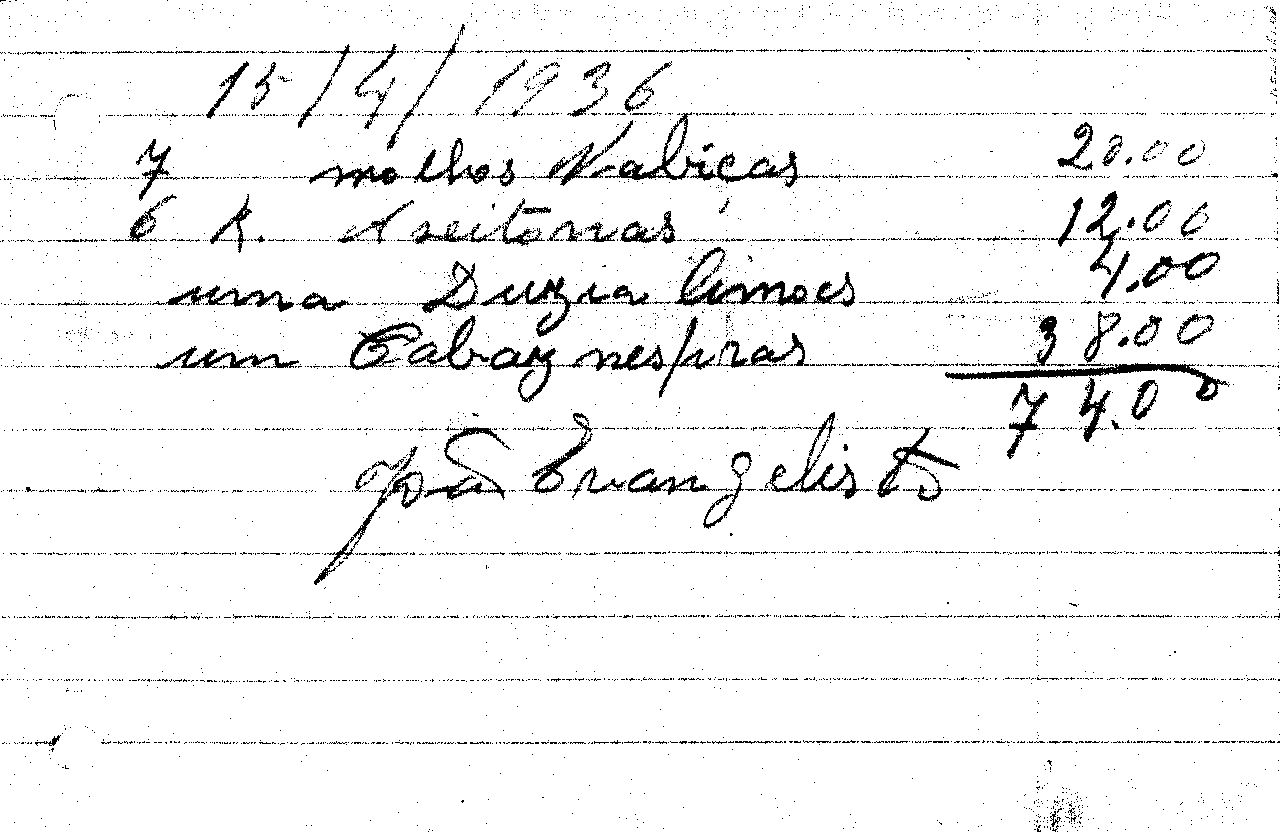 15/4/1936
7 molhos Nabiças 20.00
6 K. Aseitonas 12.00
uma Duzia limoes 4.00
um Cabaz nespras 38.00
74.00
João Evangelista